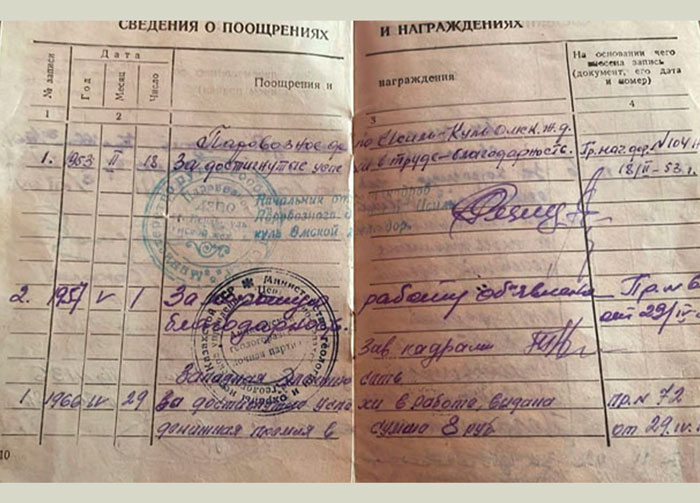 СВЕДЕНИЯ О ПООЩРЕНИЯХ И НАГРАЖДЕНИЯХ
№ записи
Дата
Год
Месяц
Число
Поощрения и награждения
На основании чего внесена запись (документ, его дата и номер)
1 2 3 4
Паровозное депо Исиль-Куль Омск. ж.д.
1. 1953 II 18 За достигнутые успехи в труде - благодарность. Пр. нач. деп. № 104
18/II-53 г.
Начальник
Паровозного
куль Омской
2. 1957 V 1 За хорошую работу объявлена Пр. №
благодарность. от 29/IV
Зав. кадрами
Западная
1. 1966 IV 29 За достигнутые успехи в работе, выдана пр. № 72
денежная премия в сумме 8 руб от 29.IV.
10